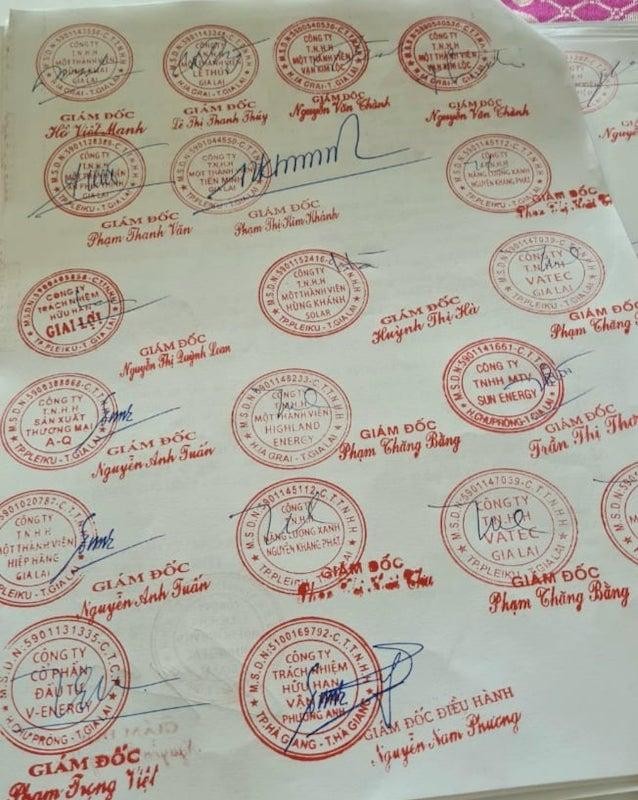 M.S.D.N:5900540556-C.T.T.N.H.H
CÔNG TY
T.N.H.H
MỘT THÀNH VIÊN
GIA LAI
H.IA GRAI - T.GIA LAI
GIÁM ĐỐC
Hồ Việt Mạnh
CÔNG TY
T.N.H.H
MỘT THÀNH VIÊN
LỆ THỦY
GIA LAI
H.IA GRAI - T.GIA LAI
GIÁM ĐỐC
Lê Thị Thanh Thủy
CÔNG TY
T.N.H.H
MỘT THÀNH VIÊN
H.IA GRAI - T.GIA LAI
GIÁM ĐỐC
Nguyễn Văn Thành
CÔNG TY
T.N.H.H
MỘT THÀNH VIÊN
H.IA GRAI - T.GIA LAI
GIÁM ĐỐC
Nguyễn Văn Thành
CÔNG TY
T.N.H.H
GIA LAI
TP.PLEIKU - T.GIA LAI
GIÁM ĐỐC
Phạm Thanh Vân
M.S.D.N:5901044550-C.T.T.N.H.H
CÔNG TY
T.N.H.H
MỘT THÀNH VIÊN
GIA LAI
TP.PLEIKU - T.GIA LAI
GIÁM ĐỐC
Phạm Thị Kim Khánh
M.S.D.N:5901145112-C.T.T.N.H.H
CÔNG TY
T.N.H.H
NĂNG LƯỢNG XANH
NGUYÊN KHANG PHÁT
TP.PLEIKU - T.GIA LAI
GIÁM ĐỐC
CÔNG TY
TRÁCH NHIỆM
HỮU HẠN
GIA LỢI
TP.PLEIKU - T.GIA LAI
GIÁM ĐỐC
Nguyễn Thị Quỳnh Loan
M.S.D.N:5901152416-C.T.T.N.H.H
CÔNG TY
T.N.H.H
MỘT THÀNH VIÊN
HÙNG KHÁNH
SOLAR
TP.PLEIKU - T.GIA LAI
GIÁM ĐỐC
Huỳnh Thị Hà
M.S.D.N:5901147039-C.T.T.N.H.H
CÔNG TY
T.N.H.H
VATEC
GIA LAI
TP.PLEIKU - T.GIA LAI
GIÁM ĐỐC
Phạm Thăng
CÔNG TY
T.N.H.H
SẢN XUẤT
THƯƠNG MẠI
A-Q
TP.PLEIKU - T.GIA LAI
GIÁM ĐỐC
Nguyễn Anh Tuấn
CÔNG TY
T.N.H.H
MỘT THÀNH VIÊN
HIGHLAND
ENERGY
H.IA GRAI - T.GIA LAI
GIÁM ĐỐC
Phạm Thăng Bằng
M.S.D.N:5901141661-C.T.T.N.H.H
CÔNG TY
TNHH MTV
SUN ENERGY
H.CHƯPRÔNG - T.GIA LAI
GIÁM ĐỐC
Trần Thị Thơ
5901020787-C.T.T.N.H.H
CÔNG TY
T.N.H.H
MỘT THÀNH VIÊN
HIỆP HẰNG
GIA LAI
TP.PLEIKU - T.GIA LAI
GIÁM ĐỐC
Nguyễn Anh Tuấn
M.S.D.N:5901145112-C.T.T.N.H.H
CÔNG TY
T.N.H.H
NĂNG LƯỢNG XANH
NGUYÊN KHANG PHÁT
TP.PLEIKU - T.GIA LAI
GIÁM ĐỐC
M.S.D.N:5901147039-C.T.T.N.H.H
CÔNG TY
T.N.H.H
VATEC
GIA LAI
TP.PLEIKU - T.GIA LAI
GIÁM ĐỐC
Phạm Thăng Bằng
M.S.D.N:5901131335-C.T.C.P
CÔNG TY
CỔ PHẦN
ĐẦU TƯ
V-ENERGY
H.CHƯPRÔNG - T.GIA LAI
GIÁM ĐỐC
Phạm Trọng Việt
M.S.D.N:5100169792-C.T.T.N.H.H
CÔNG TY
TRÁCH NHIỆM
HỮU HẠN
PHƯƠNG ANH
TP.HÀ GIANG - T.HÀ GIANG
GIÁM ĐỐC ĐIỀU HÀNH
Nguyễn Nam Phương